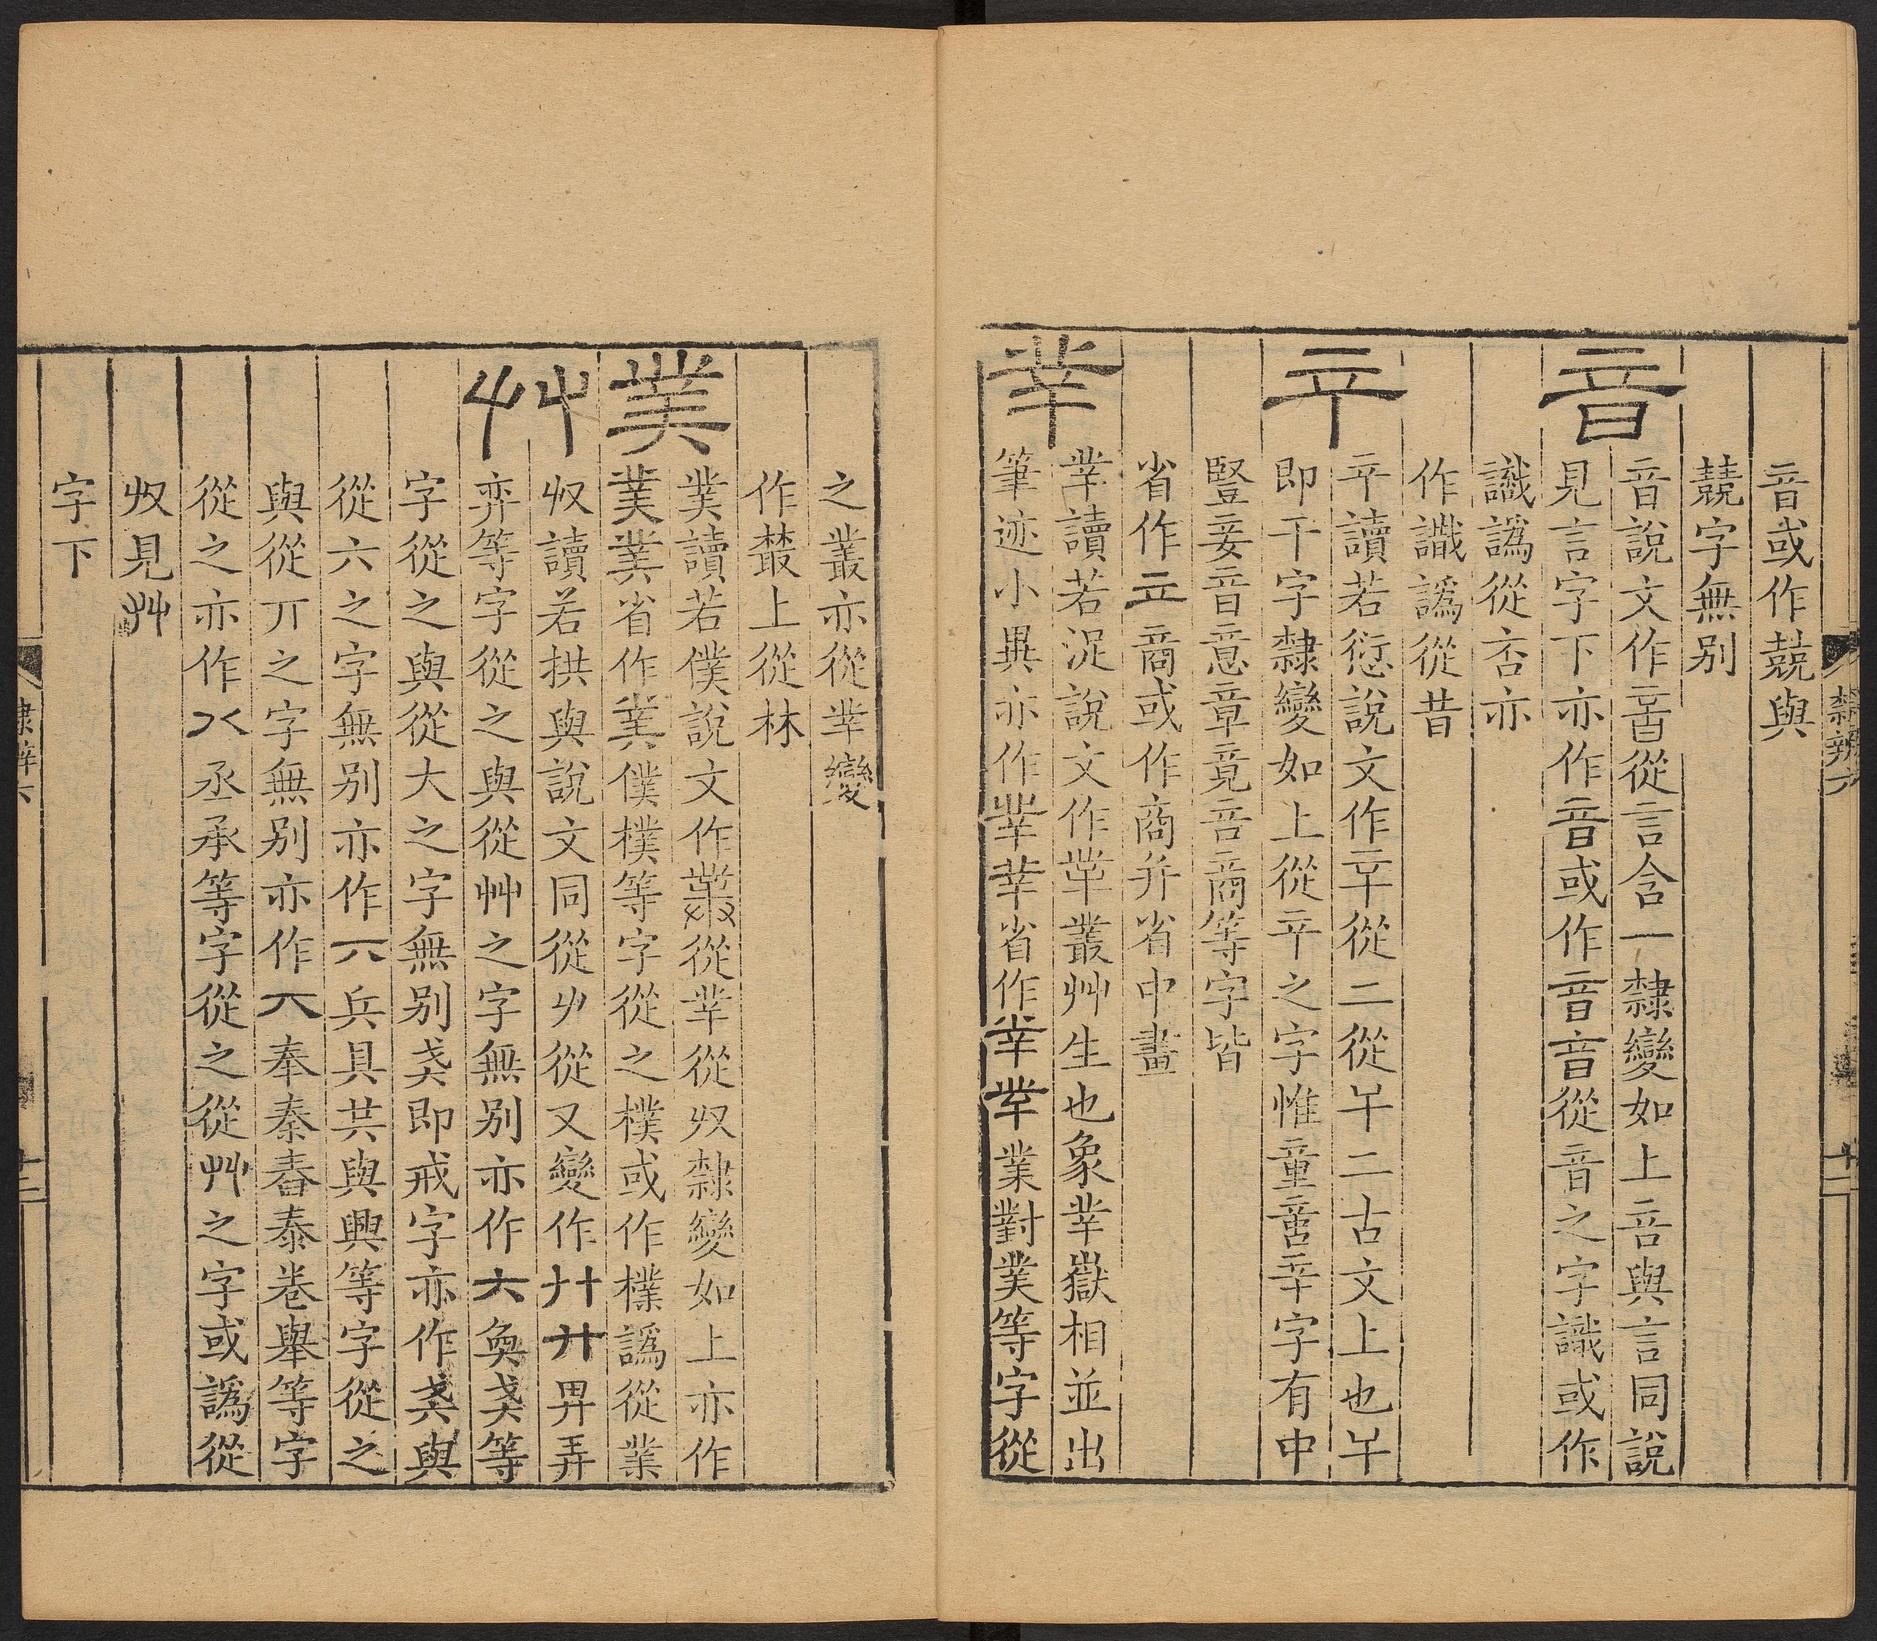 音或作兢與
兢字無別
音
音說文作𠶷從言含一隸變如上音與言同說
見言字下亦作音或作音音從音之字識或作
識譌從否亦
作識譌從昔
䇂
䇂讀若愆說文作䇂從二從𢆉二古文上也𢆉
即干字隸變如上從䇂之字惟童言辛字有中
豎妾音意章竟咅商等字皆
省作立啇或作商并省中畫
丵
丵讀若浞說文作丵叢艸生也象丵嶽相並出
筆迹小異亦作丵丵省作丵丵業對菐等字從
之叢亦從丵變
作藂上從林
菐
菐讀若僕說文作菐從丵從廾隸變如上亦作
菐菐省作菐僕樸等字從之樸或作檏譌從業
廾
収讀若拱與說文同從𠂇從又變作廾廾畀弄
弈等字從之與從艸之字無別亦作六奐戔等
字從之與從大之字無別戔即戒字亦作戔與
從六之字無別亦作六兵具共與興等字從之
與從丌之字無別亦作丌奉秦舂泰卷舉等字
從之亦作八丞承等字從之從艸之字或譌從
収見艸
字下
隸辨六
十二